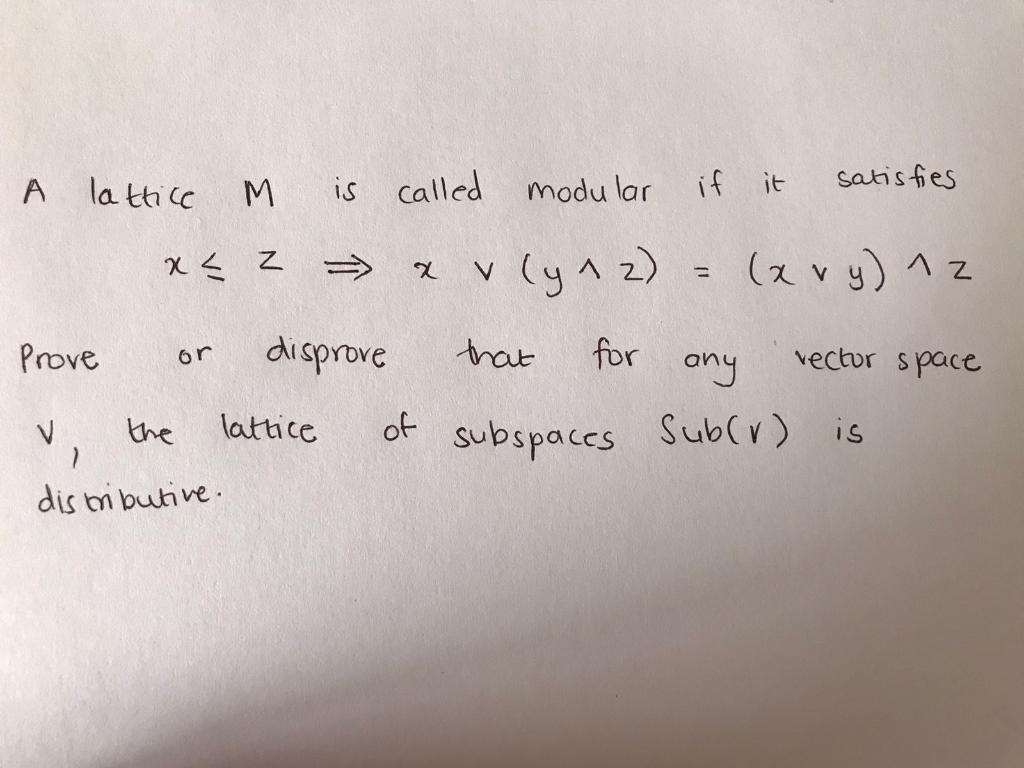 A lattice M is called modular if it satisfies
x ≤ z ⇒ x ∨ (y ∧ z) = (x ∨ y) ∧ z
Prove or disprove that for any vector space
V, the lattice of subspaces Sub(V) is
distributive.